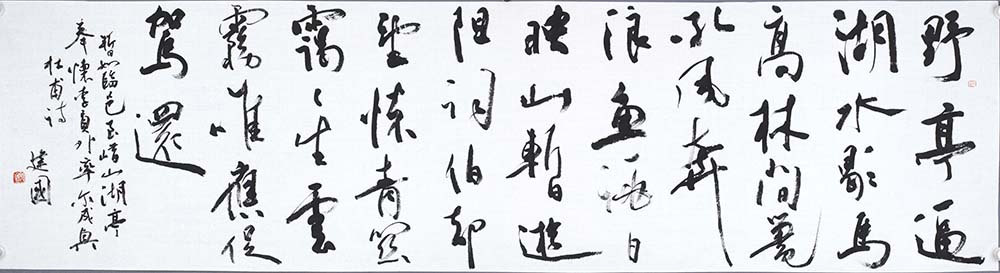 野亭逼
湖水歇馬
高林間鼉
吼風奔
浪魚跳日
映山暫遊
阻詞伯却
望懷青關
靄〻生雲
霧唯應促
駕還
暫如臨邑至㟙山湖亭
奉懷李員外率尔成興
杜甫詩
建國